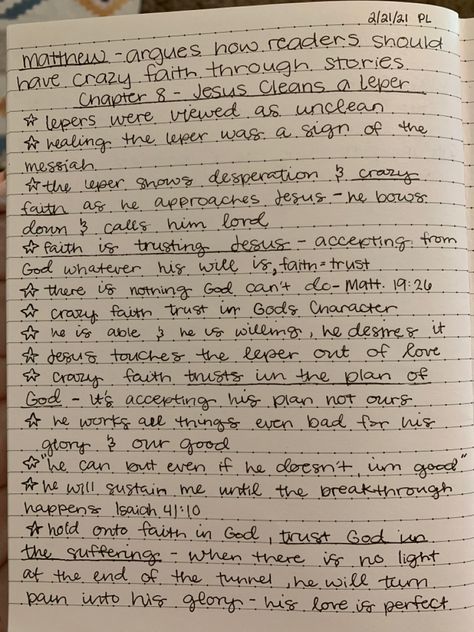 2/21/21 PL
matthew - argues how readers should
have crazy faith through stories
Chapter 8 - Jesus Cleans a leper
☆ lepers were viewed as unclean
☆ healing the leper was a sign of the
messiah
☆ the leper shows desperation & crazy
faith as he approaches Jesus - he bows
down & calls him lord
☆ faith is trusting Jesus - accepting from
God whatever his will is, faith = trust
☆ there is nothing God can't do - Matt. 19:26
☆ crazy faith trust in Gods Character
☆ he is able & he is willing, he desires it
☆ Jesus touches the leper out of love
☆ crazy faith trusts in the plan of
God - it's accepting his plan not ours
☆ he works all things even bad for his
glory & our good
☆ "he can but even if he doesn't, im good"
☆ he will sustain me until the breakthrough
happens Isaiah 41:10
☆ hold onto faith in God, trust God in
the sufferings - when there is no light
at the end of the tunnel, he will turn
pain into his glory - his love is perfect